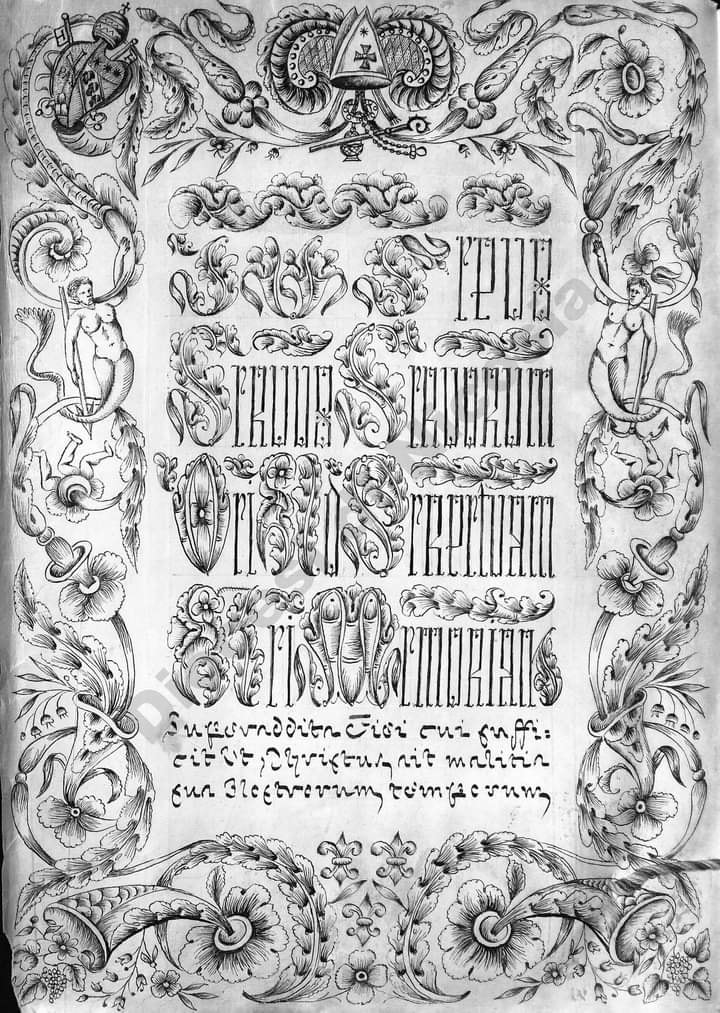 Pius Epus
Servus Servorum
Dei Ad Perpetuam
Rei Memoriam
Superaddita Diei cui suffi:
cit Ut Christus ait malitia
sua Nostrorum temporum